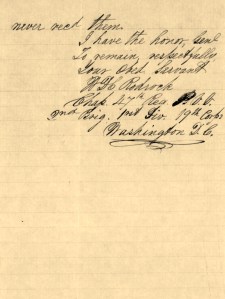 never
them.
I have the honor, Genl
To remain, respectfully
Your Obt. Servant
W H C Rodrock
Chap. 47th Reg P. V. V.
2nd Brig. 1st Div. 19th Corps
Washington D. C.